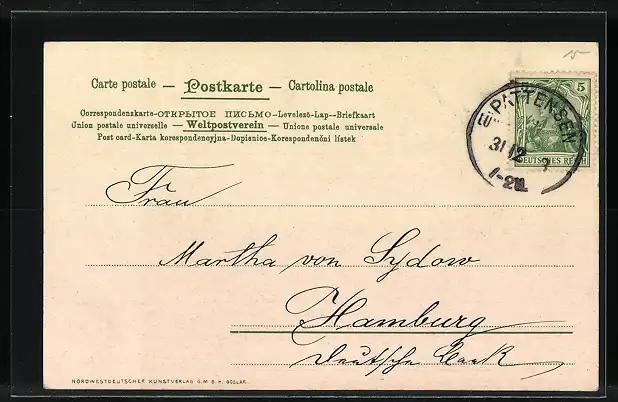 15
Carte postale — Postkarte — Cartolina postale
Correspondenskarte-ОТКРЫТОЕ ПИСЬМО-Levelező-Lap--Briefkaart
Union postale universelle — Weltpostverein — Unione postale universale
Post card-Karta korespondencyjna-Dopisnice-Korespondenční lístek
5
DEUTSCHES REICH
PATTENSEN
31 12
1-2N.
Frau
Martha von Sydow
Hamburg
Deutsche Bank
NORDWESTDEUTSCHER KUNSTVERLAG G.M.B.H. GOSLAR.